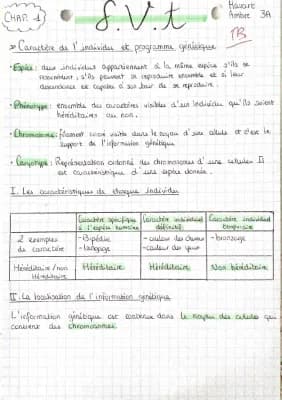 CHAP. 1
S.V.t
Havart
Ambre 3A
TB
Caractère de l'individu et programme génétique
• Espèce : deux individus appartiennent à la même espèce s'ils se
ressemblent, s'ils peuvent se reproduire ensemble et si leur
descendance est capable à son tour de se reproduire.
• Phénotype : ensemble des caractères visibles d'un individu qu'ils soient
héréditaires ou non.
• Chromosomes : filament visible dans le noyau d'une cellule et c'est le
support de l'information génétique
• Caryotype : Représentation ordonné des chromosomes d'une cellules Il
est caractéristique d'une espèce donnée.
I. Les caractéristiques de chaque individu
Caractère spécifique à l'espèce humaine
Caractère individuel définitif
Caractère individuel temporaire
2 exemples de caractère
- Bipédie
- langage
- couleur des cheveux
- couleur des yeux
- bronzage
Héréditaire / non Héréditaire
Héréditaire
Héréditaire
Non héréditaire
II. La localisation de l'information génétique
L'information génétique est contenue dans le noyau des cellules qui
contient des chromosomes.